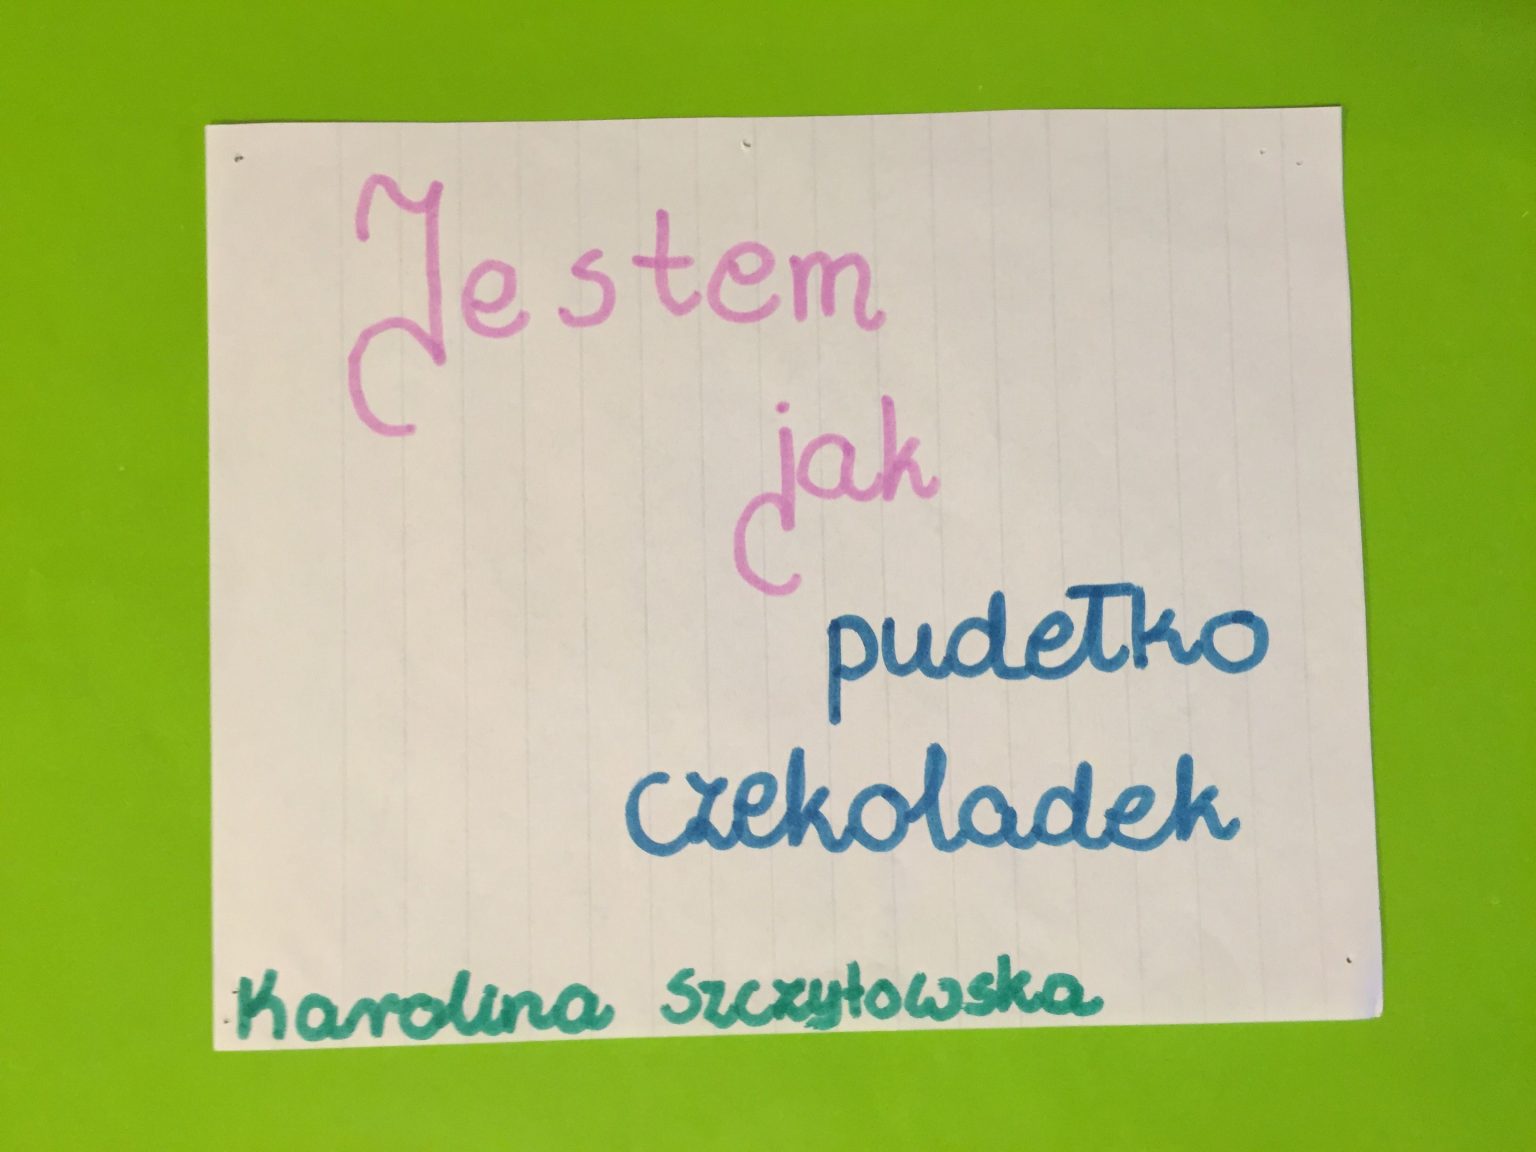 Jestem
jak
pudełko
czekoladek
Karolina Szczytowska